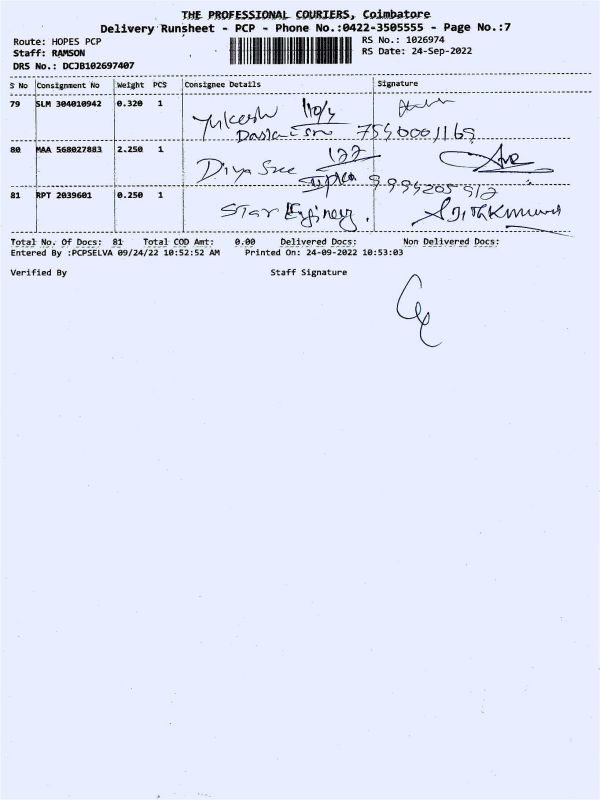 THE PROFESSIONAL COURIERS, Coimbatore
Delivery Runsheet - PCP - Phone No.:0422-3505555 - Page No.:7
Route: HOPES PCP
Staff: RAMSON
DRS No.: DCJB102697407
RS No.: 1026974
RS Date: 24-Sep-2022
S No Consignment No Weight PCS Consignee Details Signature
79 SLM 304010942 0.320 1 Yukeesh 110/4
7540001169
80 MAA 568027883 2.250 1 Divya Sree 122
9994205912
81 RPT 2039601 0.250 1 Star
Total No. Of Docs: 81 Total COD Amt: 0.00 Delivered Docs: Non Delivered Docs:
Entered By :PCPSELVA 09/24/22 10:52:52 AM Printed On: 24-09-2022 10:53:03
Verified By Staff Signature